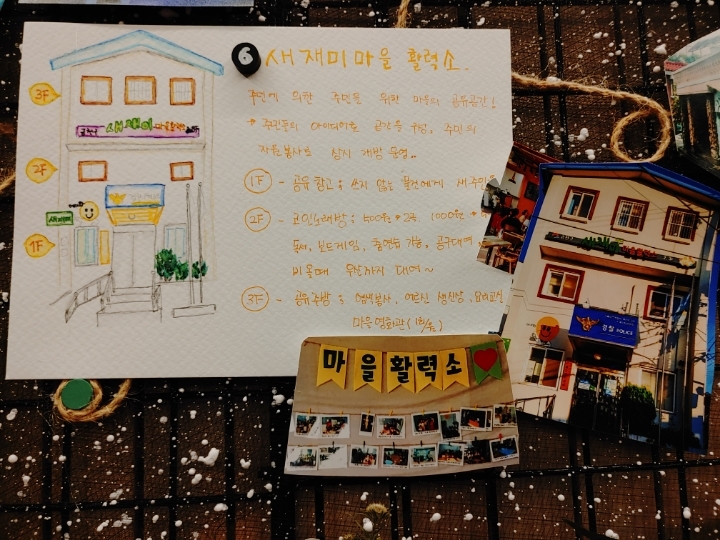 6 새재미마을 활력소.
주민에 의한 주민을 위한 마을의 공유공간!
* 주민들의 아이디어로 공간을 구성, 주민의
자원봉사로 상시 개방 운영..
1F - 공유창고 : 쓰지 않는 물건에게 새 주인을
2F - 코인노래방 : 500원 * 2곡 1000원 *
독서, 보드게임, 출력도 가능, 공구대여
비올때 우산까지 대여~
3F - 공유주방 : 어르신 생신상, 요리교실
마을영화관
3F
2F
1F
새재미
마을활력소
경찰 POLICE